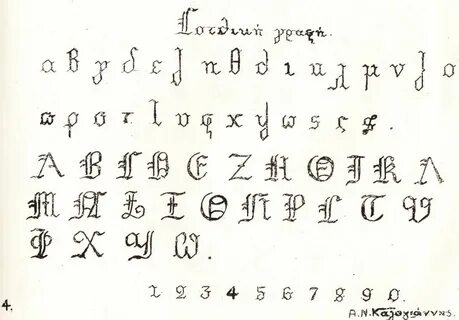 Γοτθική γραφή.
α β γ δ ε ζ η θ ϑ ι κ λ μ ν ξ ο
ϖ ρ σ τ τ υ φ χ ψ ω ς ς .
Α Β Γ Δ Ε Ζ Η Θ Ι Κ Λ
Μ Ν Ξ Ξ Ο Π Ρ Σ Τ Υ
Φ Χ Ψ Ω .
1 2 3 4 5 6 7 8 9 0.
4.
Α.Ν.Καλογιάννης.